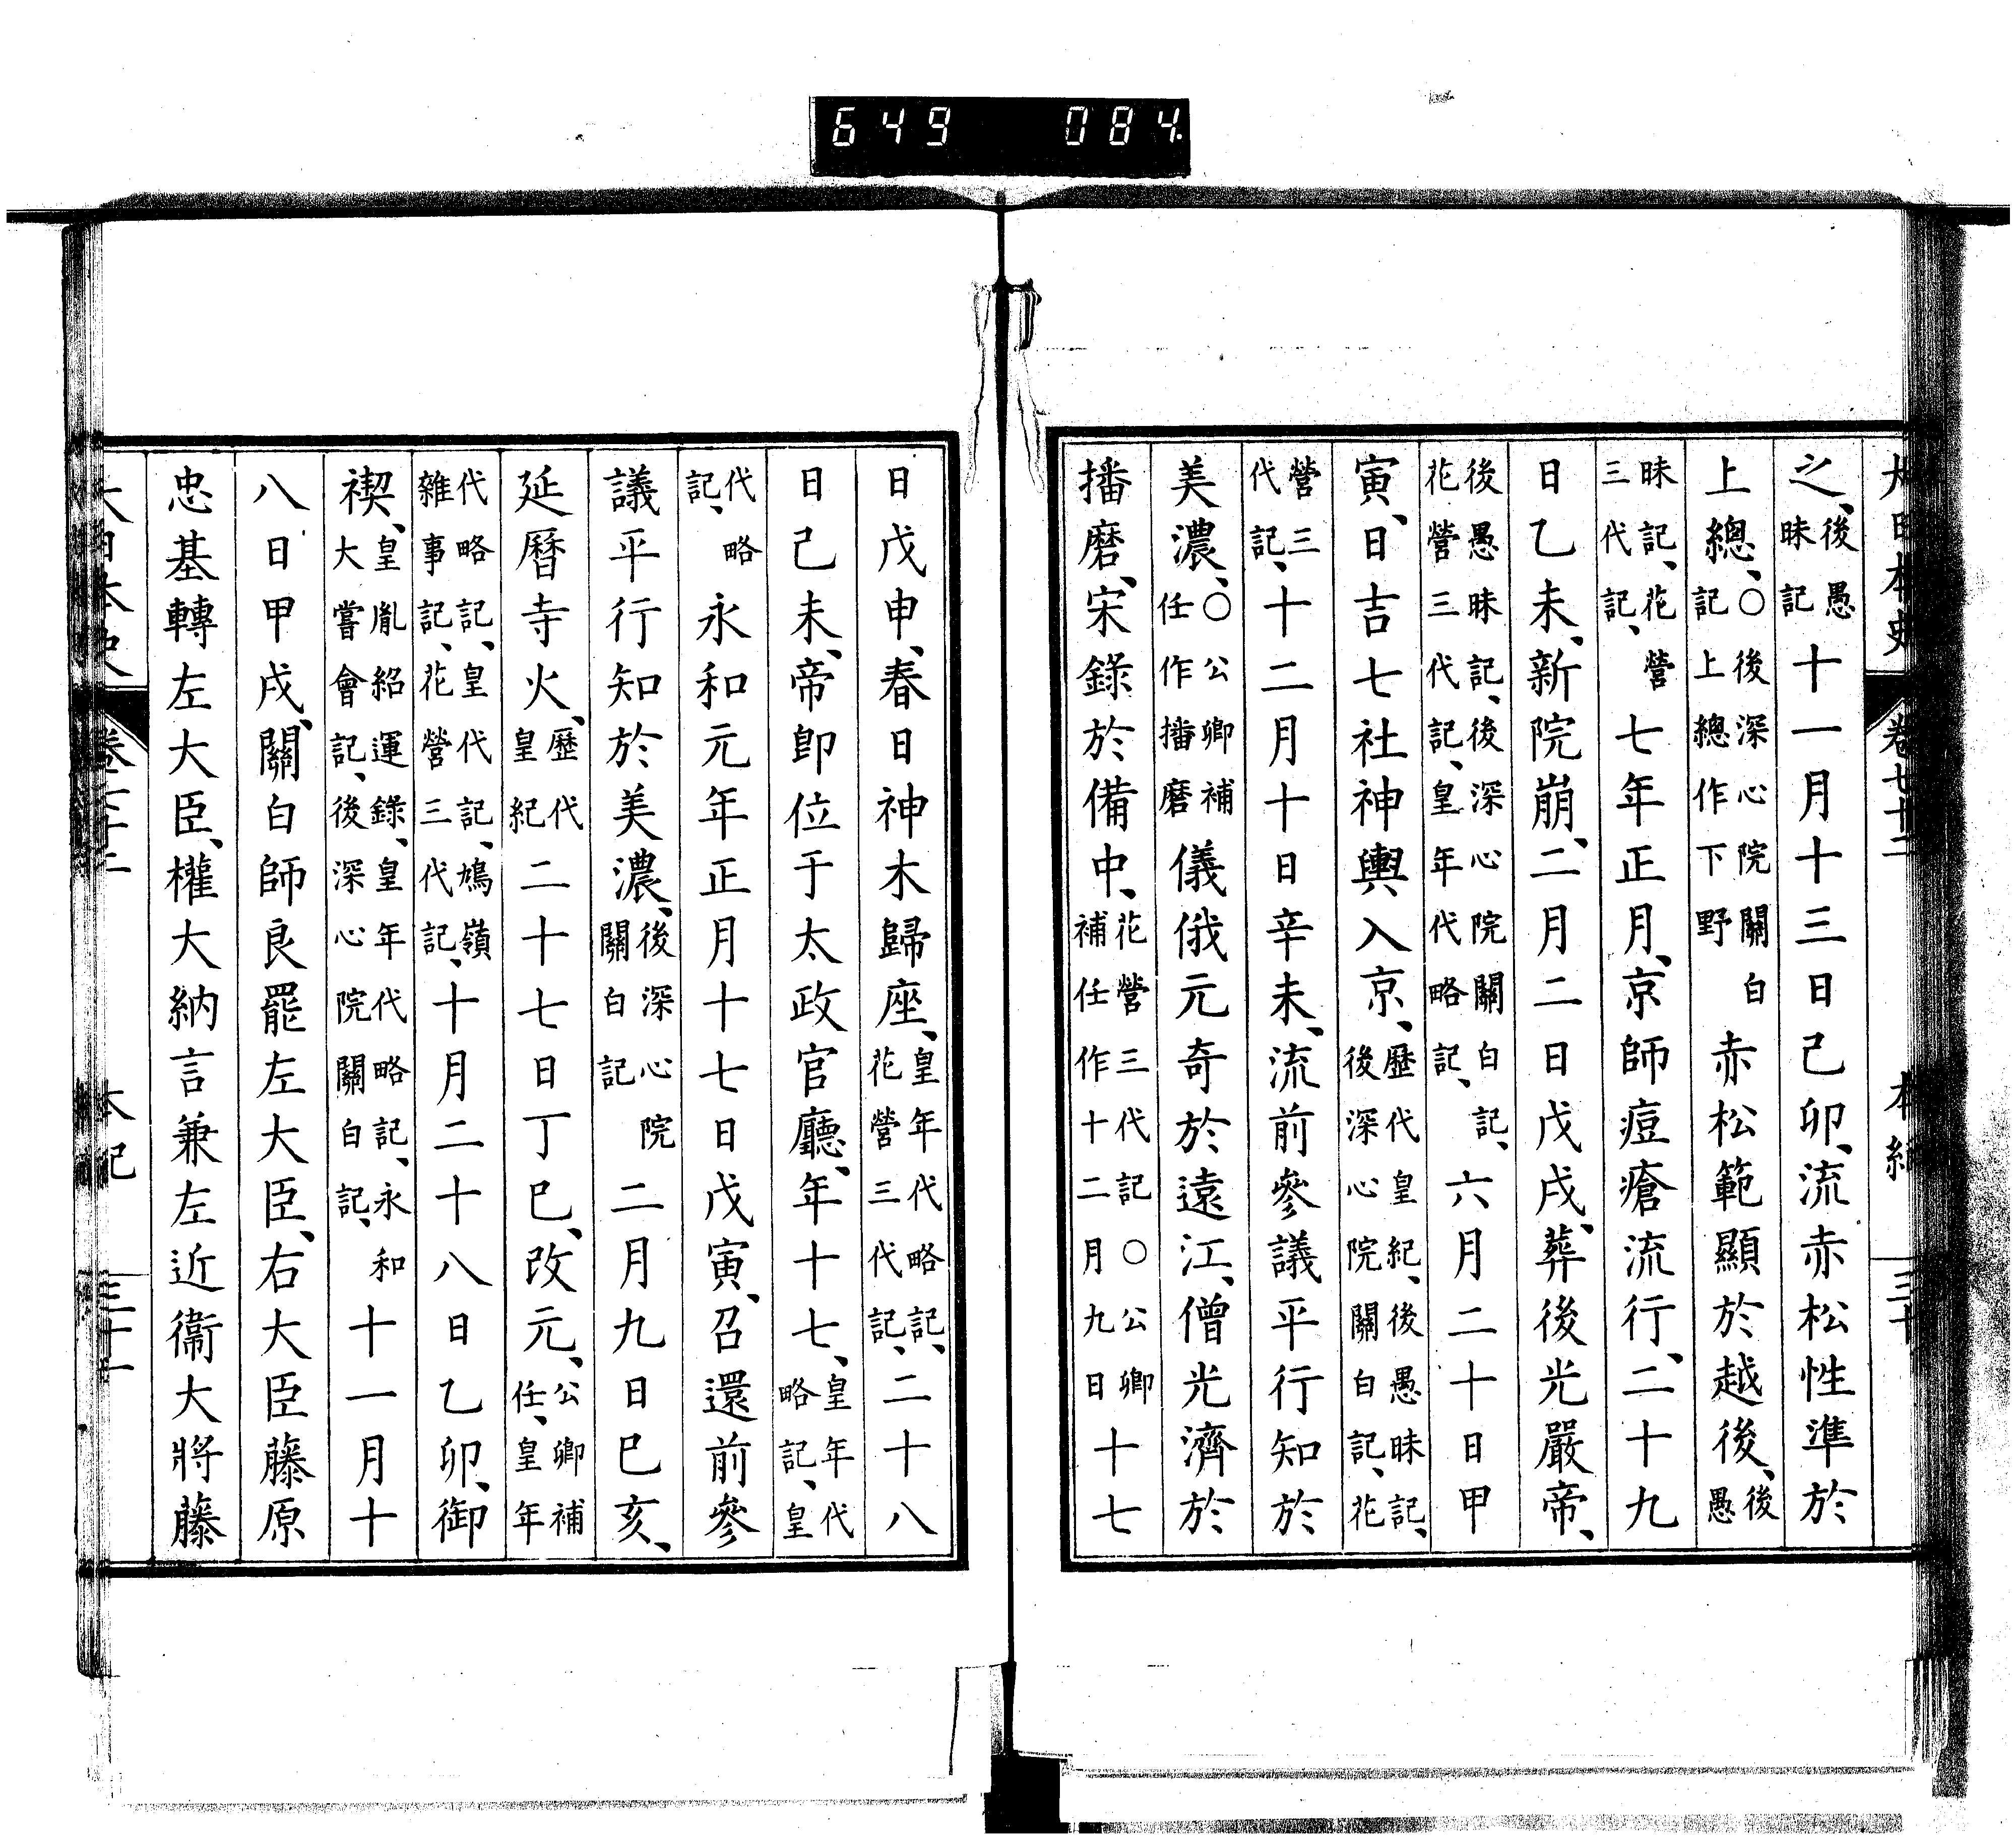 649 084
大日本史 卷七十二 本紀 三十
之、後愚昧記十一月十三日己卯、流赤松性準於
上總、○後深心院關白記上總作下野赤松範顯於越後、後愚
昧記、花營三代記、七年正月、京師痘瘡流行、二十九
日乙未、新院崩、二月二日戊戌、葬後光嚴帝、
後愚昧記、後深心院關白記、花營三代記、皇年代略記、六月二十日甲
寅、日吉七社神輿入京、歷代皇紀、後愚昧記、後深心院關白記、花
營三代記、十二月十日辛未、流前參議平行知於
美濃、○公卿補任作播磨儀俄元奇於遠江、僧光濟於
播磨、宋錄於備中、花營三代記○公卿補任作十二月九日十七
日戊申、春日神木歸座、皇年代略記、花營三代記、二十八
日己未、帝卽位于太政官廳、年十七、皇年代略記、皇
代略記、永和元年正月十七日戊寅、召還前參
議平行知於美濃、後深心院關白記二月九日巳亥、
延曆寺火、歷代皇紀二十七日丁巳、改元、公卿補任、皇年
代略記、皇代記、鳩嶺雜事記、花營三代記、十月二十八日乙卯、御
禊、皇胤紹運錄、皇年代略記、永和大嘗會記、後深心院關白記、十一月十
八日甲戌、關白師良罷左大臣、右大臣藤原
忠基轉左大臣、權大納言兼左近衞大將藤
大日本史 卷七十二 本紀 三十一